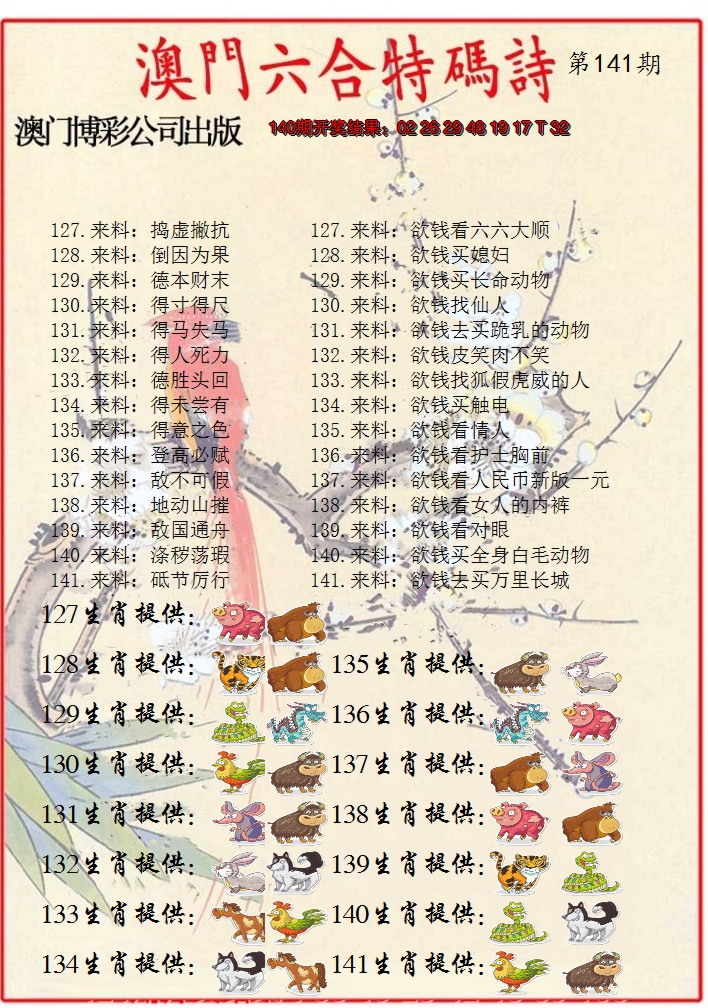 澳門六合特碼詩 第141期
澳门博彩公司出版 140期开奖结果：02 26 29 48 19 17 T 32
127.来料：捣虚撇抗 127.来料：欲钱看六六大顺
128.来料：倒因为果 128.来料：欲钱买媳妇
129.来料：德本财末 129.来料：欲钱买长命动物
130.来料：得寸得尺 130.来料：欲钱找仙人
131.来料：得马失马 131.来料：欲钱去买跪乳的动物
132.来料：得人死力 132.来料：欲钱皮笑肉不笑
133.来料：德胜头回 133.来料：欲钱找狐假虎威的人
134.来料：得未尝有 134.来料：欲钱买触电
135.来料：得意之色 135.来料：欲钱看情人
136.来料：登高必赋 136.来料：欲钱看护士胸前
137.来料：敌不可假 137.来料：欲钱看人民币新版一元
138.来料：地动山摧 138.来料：欲钱看女人的内裤
139.来料：敌国通舟 139.来料：欲钱看对眼
140.来料：涤秽荡瑕 140.来料：欲钱买全身白毛动物
141.来料：砥节厉行 141.来料：欲钱去买万里长城
127生肖提供：
128生肖提供： 135生肖提供：
129生肖提供： 136生肖提供：
130生肖提供： 137生肖提供：
131生肖提供： 138生肖提供：
132生肖提供： 139生肖提供：
133生肖提供： 140生肖提供：
134生肖提供： 141生肖提供：